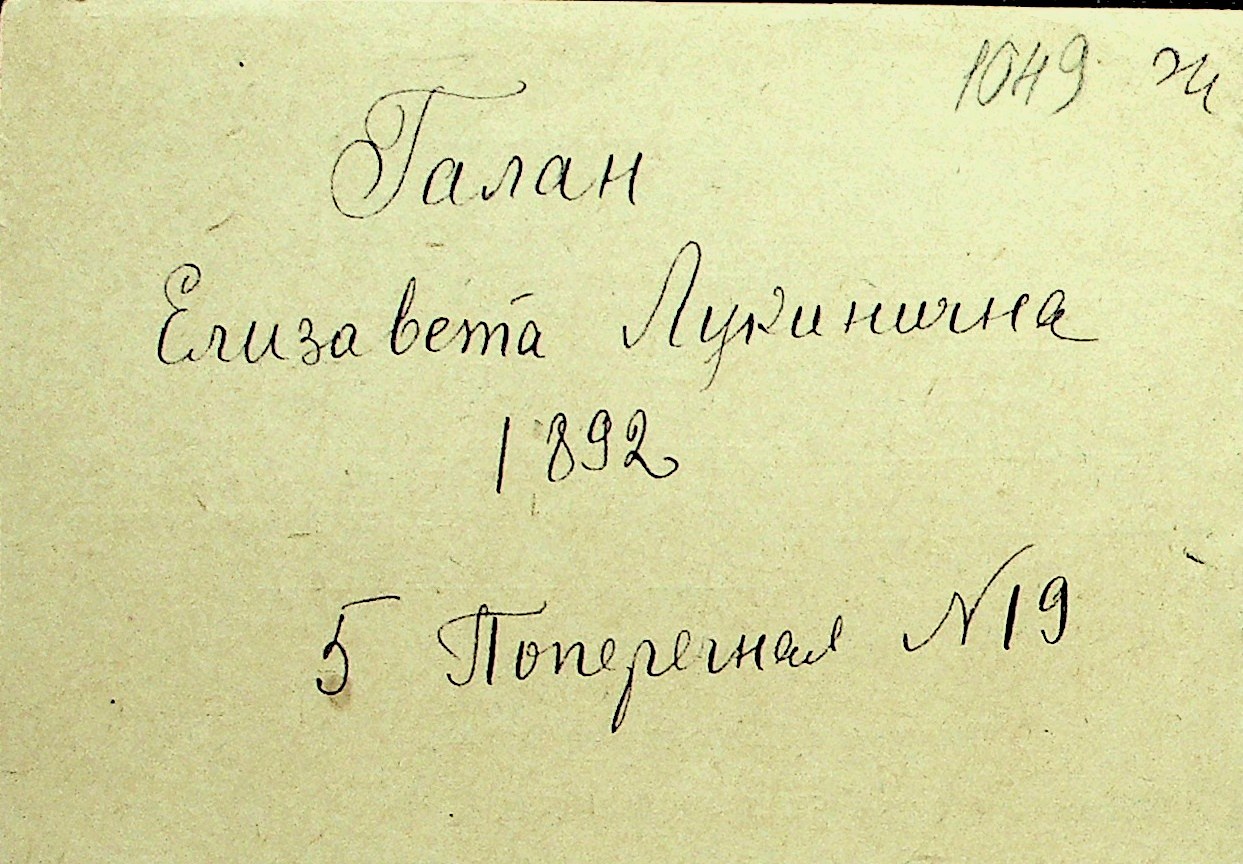 1049 ж
Галан
Елизавета Лукинична
1892
5 Поперечная N 19